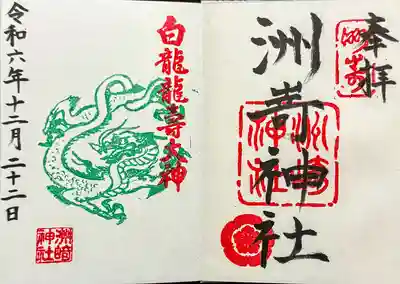 奉拝
洲崎
洲嵜神社
洲崎神社
白龍龍寿大神
令和六年十二月二十二日
洲崎神社